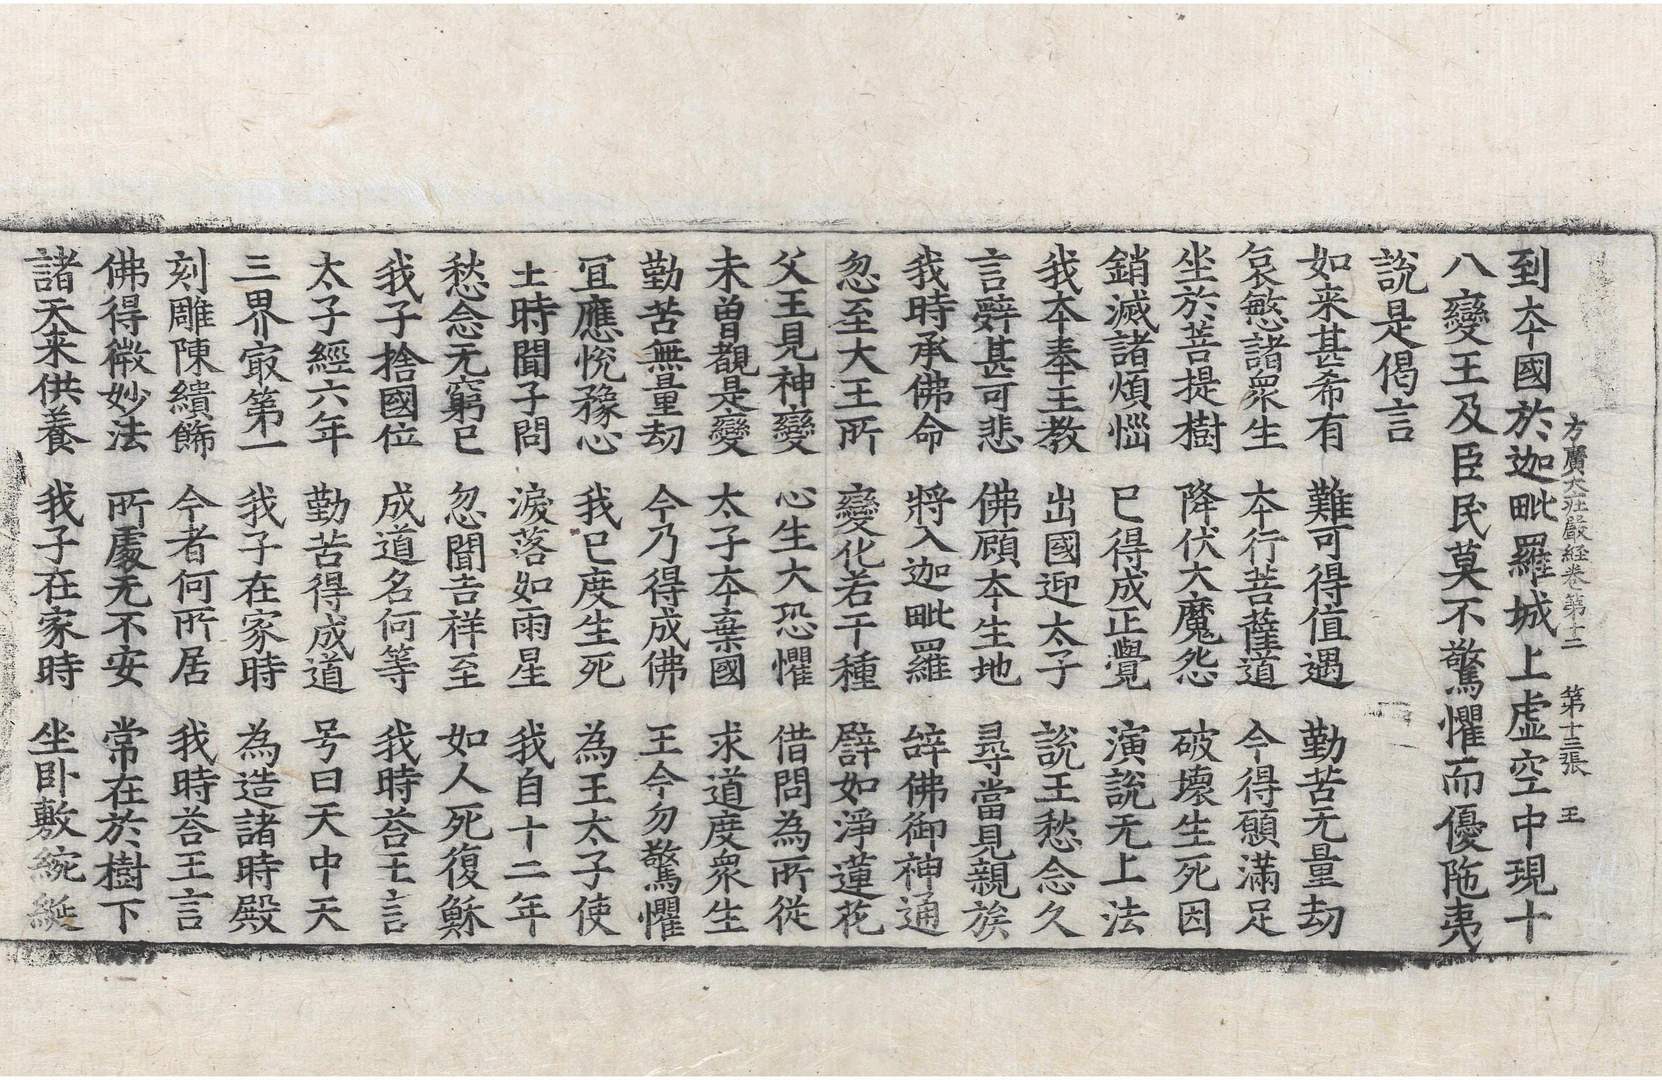 方廣大莊嚴經卷第十二 第十三張 王
到夲國於迦毗羅城上虚空中現十
八變王及臣民莫不驚懼而優陁夷
說是偈言
如来甚希有 難可得值遇 勤苦无量劫
哀慜諸衆生 夲行菩薩道 今得願滿足
坐於菩提樹 降伏大魔怨 破壞生死因
銷滅諸煩惱 已得成正覺 演說无上法
我夲奉王教 出國迎太子 說王愁念久
言辭甚可悲 佛顧夲生地 尋當見親族
我時承佛命 將入迦毗羅 辞佛御神通
忽至大王所 變化若干種 譬如淨蓮花
父王見神變 心生大恐懼 借問為所從
未曽覩是變 太子夲棄國 求道度衆生
勤苦無量劫 今乃得成佛 王今勿驚懼
冝應恱豫心 我已度生死 為王太子使
王時聞子問 淚落如雨星 我自十二年
愁念无窮已 忽聞吉祥至 如人死復穌
我子捨國位 成道名何等 我時荅王言
太子經六年 勤苦得成道 号曰天中天
三界㝡第一 我子在家時 為造諸時殿
刻雕陳繢飾 今者何所居 我時荅王言
佛得微妙法 所處无不安 常在於樹下
諸天来供養 我子在家時 坐卧敷綩綖